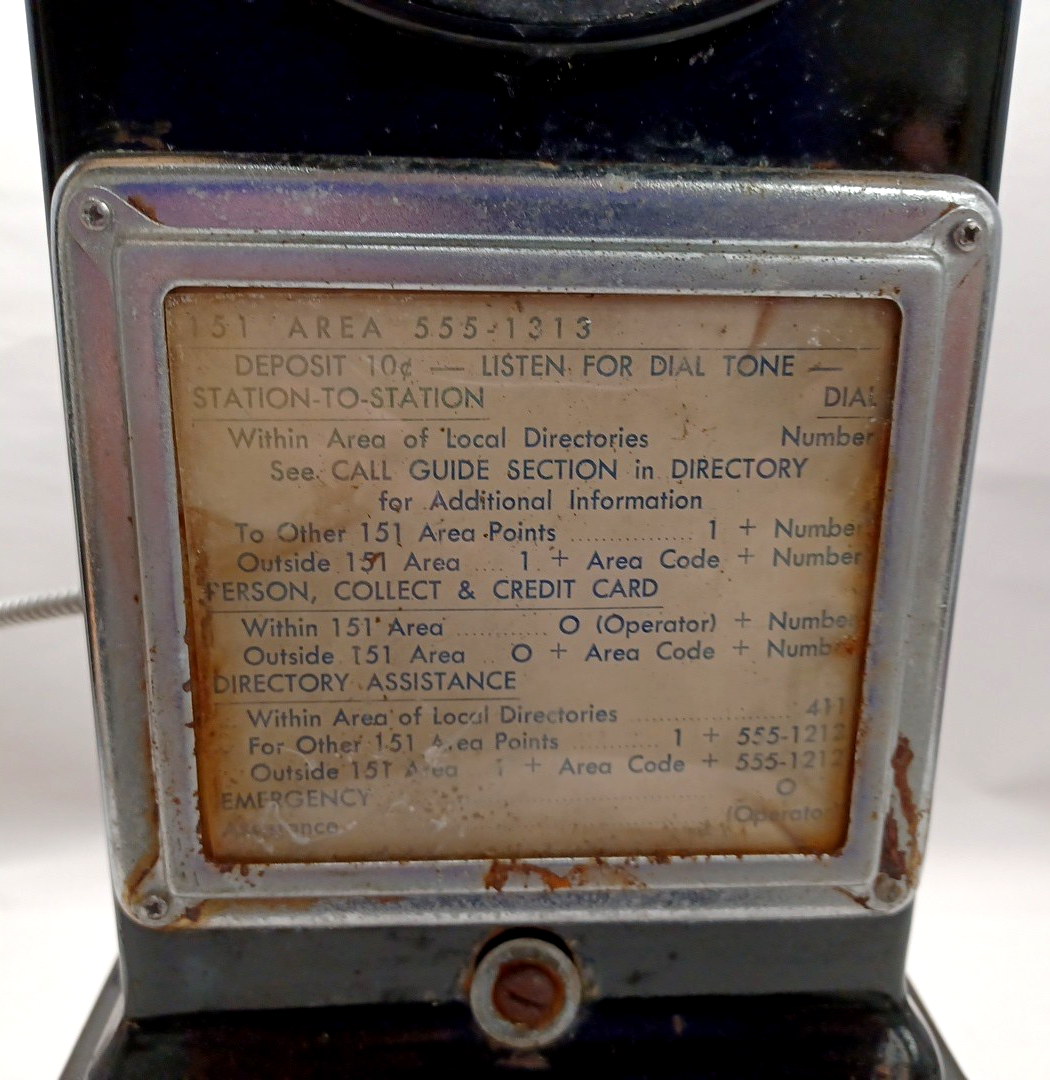 151 AREA 555-1313
DEPOSIT 10¢ — LISTEN FOR DIAL TONE —
STATION-TO-STATION DIAL
Within Area of Local Directories Number
See CALL GUIDE SECTION in DIRECTORY
for Additional Information
To Other 151 Area Points ................ 1 + Number
Outside 151 Area .... 1 + Area Code + Number
PERSON, COLLECT & CREDIT CARD
Within 151 Area ........... O (Operator) + Number
Outside 151 Area .. O + Area Code + Number
DIRECTORY ASSISTANCE
Within Area of Local Directories ..................... 411
For Other 151 Area Points ........... 1 + 555-1212
Outside 151 Area 1 + Area Code + 555-1212
EMERGENCY ........................ O
(Operator